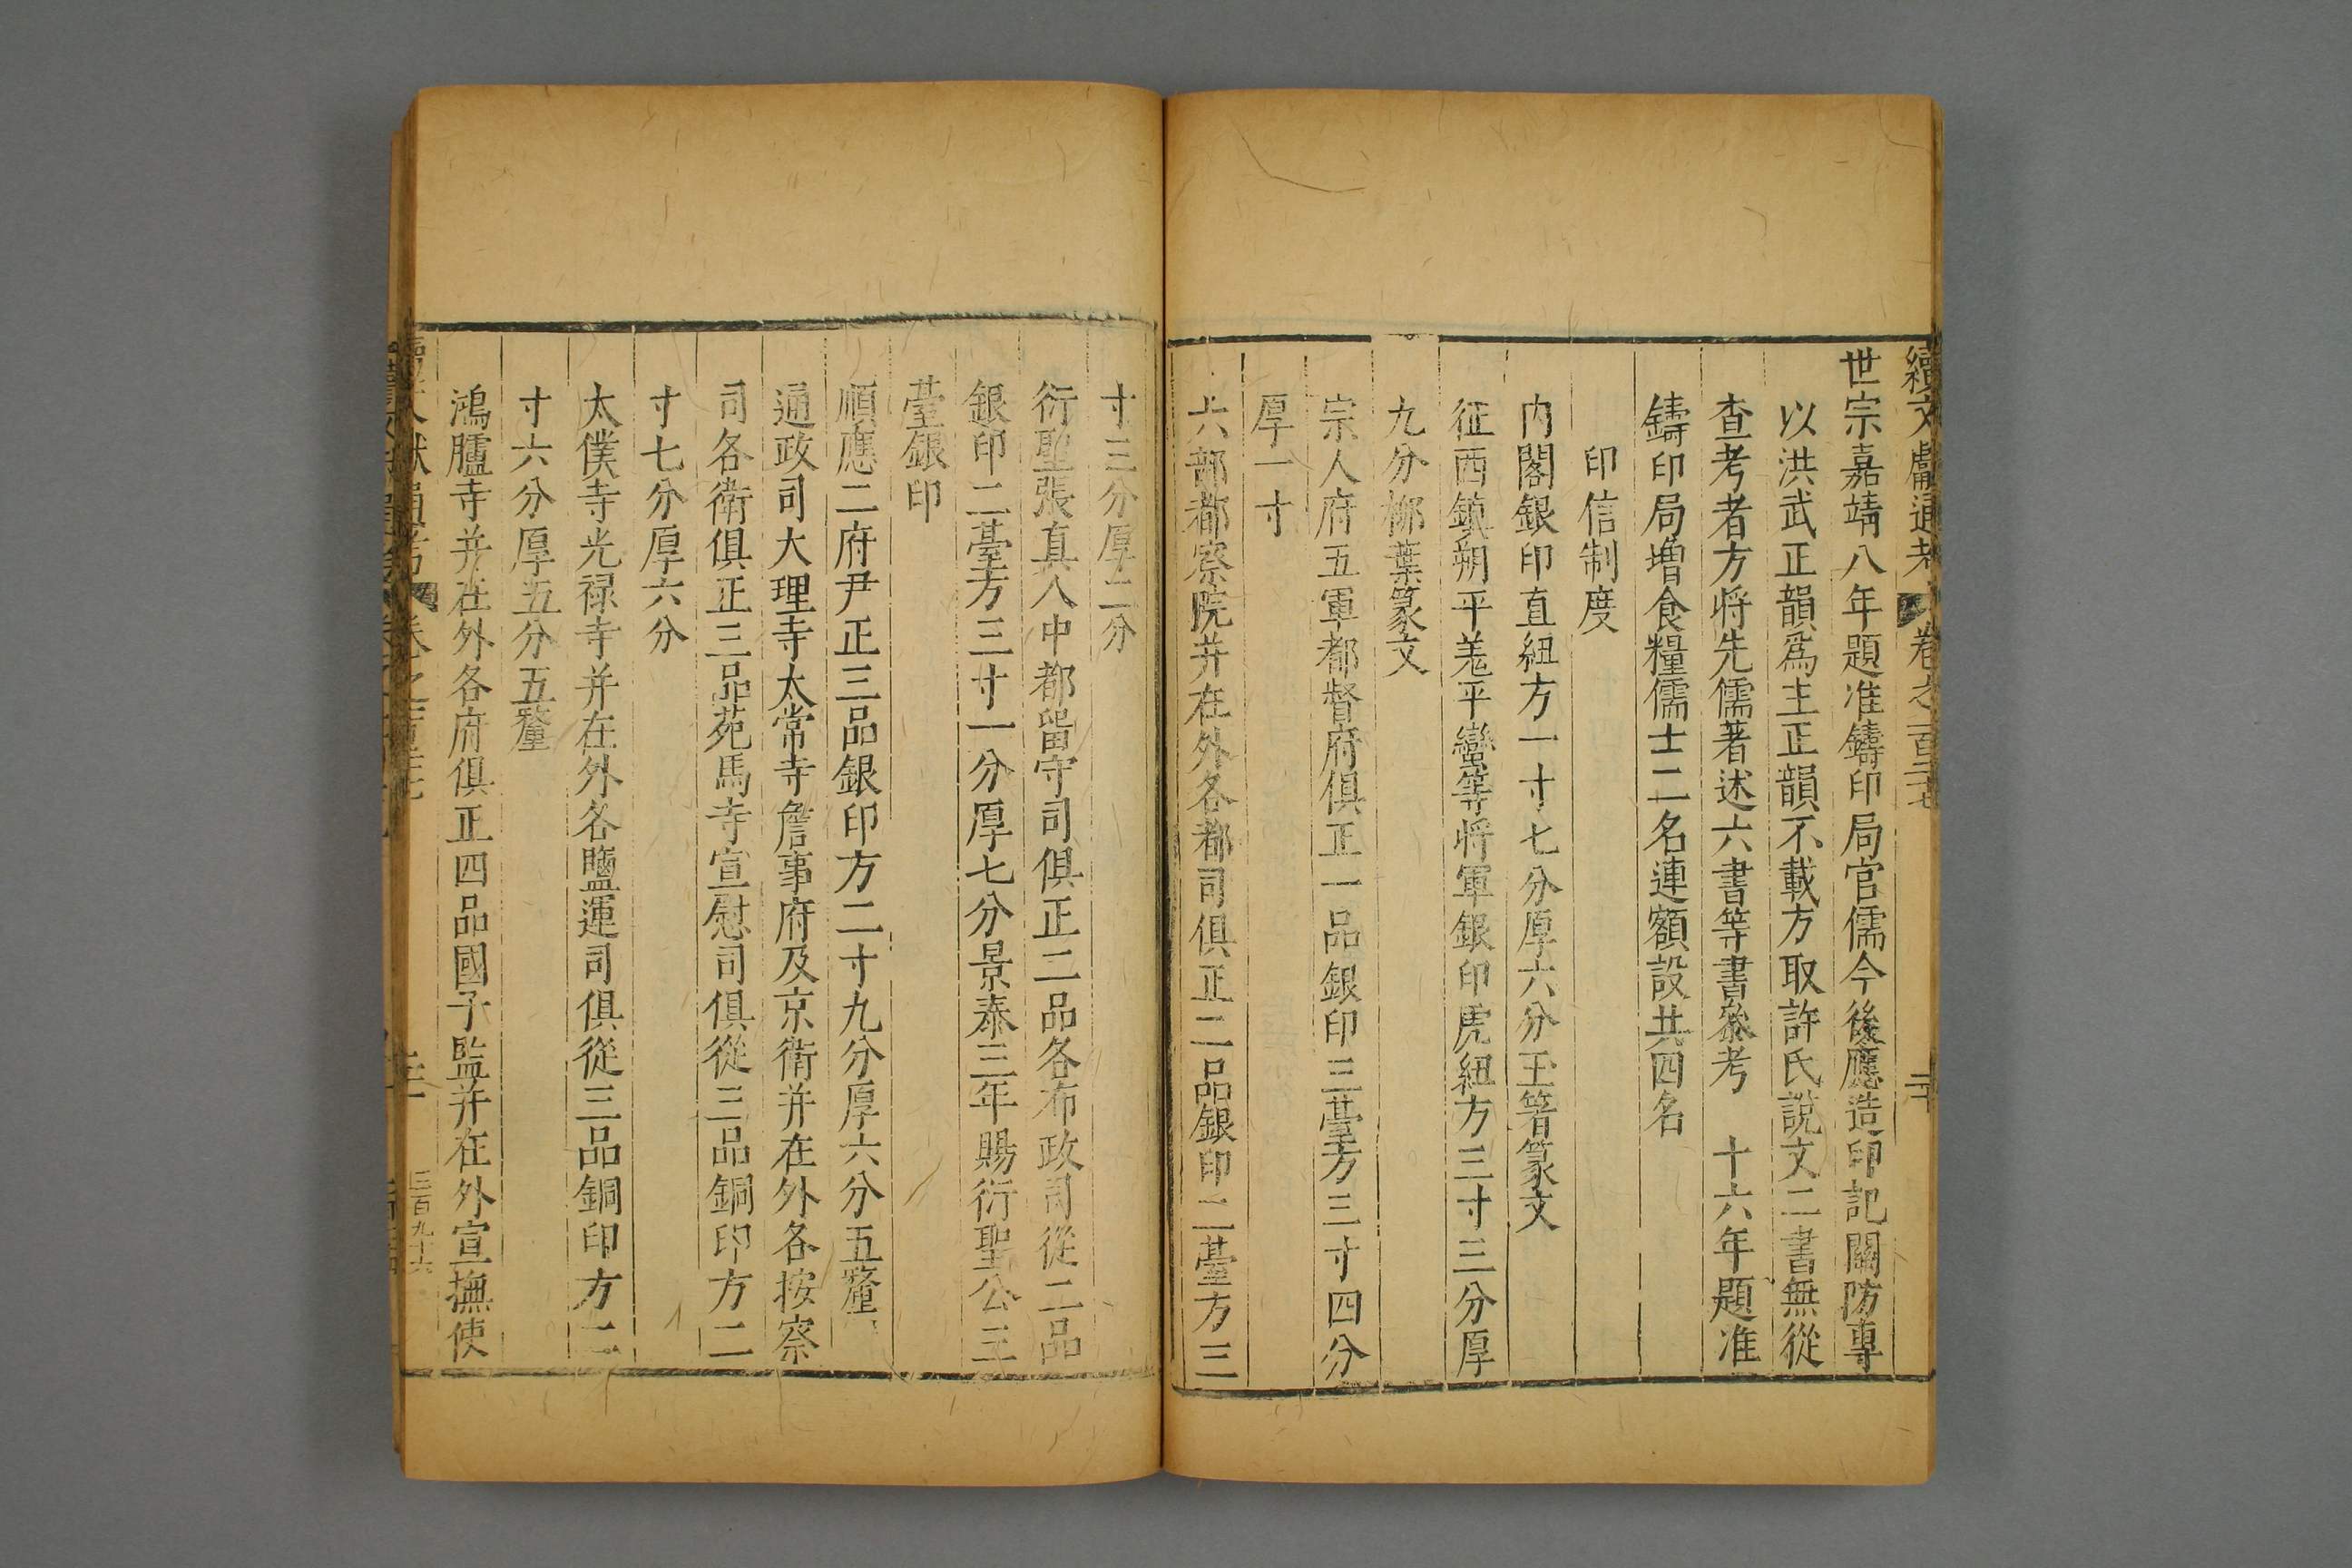 續文獻通考 卷之一百三十七 二十
世宗嘉靖八年題准鑄印局官儒今後應造印記關防專
以洪武正韻爲主正韻不載方取許氏說文二書無從
查考者方將先儒著述六書等書叅考 十六年題准
鑄印局增食糧儒士二名連額設共四名
印信制度
內閣銀印直紐方一寸七分厚六分玉筯篆文
征西鎮朔平羗平蠻等將軍銀印虎紐方三寸三分厚
九分柳葉篆文
宗人府五軍都督府俱正一品銀印三臺方三寸四分
厚一寸
六部都察院并在外各都司俱正二品銀印二臺方三
寸三分厚二分
衍聖張真人中都留守司俱正二品各布政司從二品
銀印二臺方三寸一分厚七分景泰三年賜衍聖公三
臺銀印
順應二府尹正三品銀印方二寸九分厚六分五釐
通政司大理寺太常寺詹事府及京衛并在外各按察
司各衛俱正三品苑馬寺宣慰司俱從三品銅印方二
寸七分厚六分
太僕寺光祿寺并在外各鹽運司俱從三品銅印方二
寸六分厚五分五釐
鴻臚寺并在外各府俱正四品國子監并在外宣撫使
三百九十六